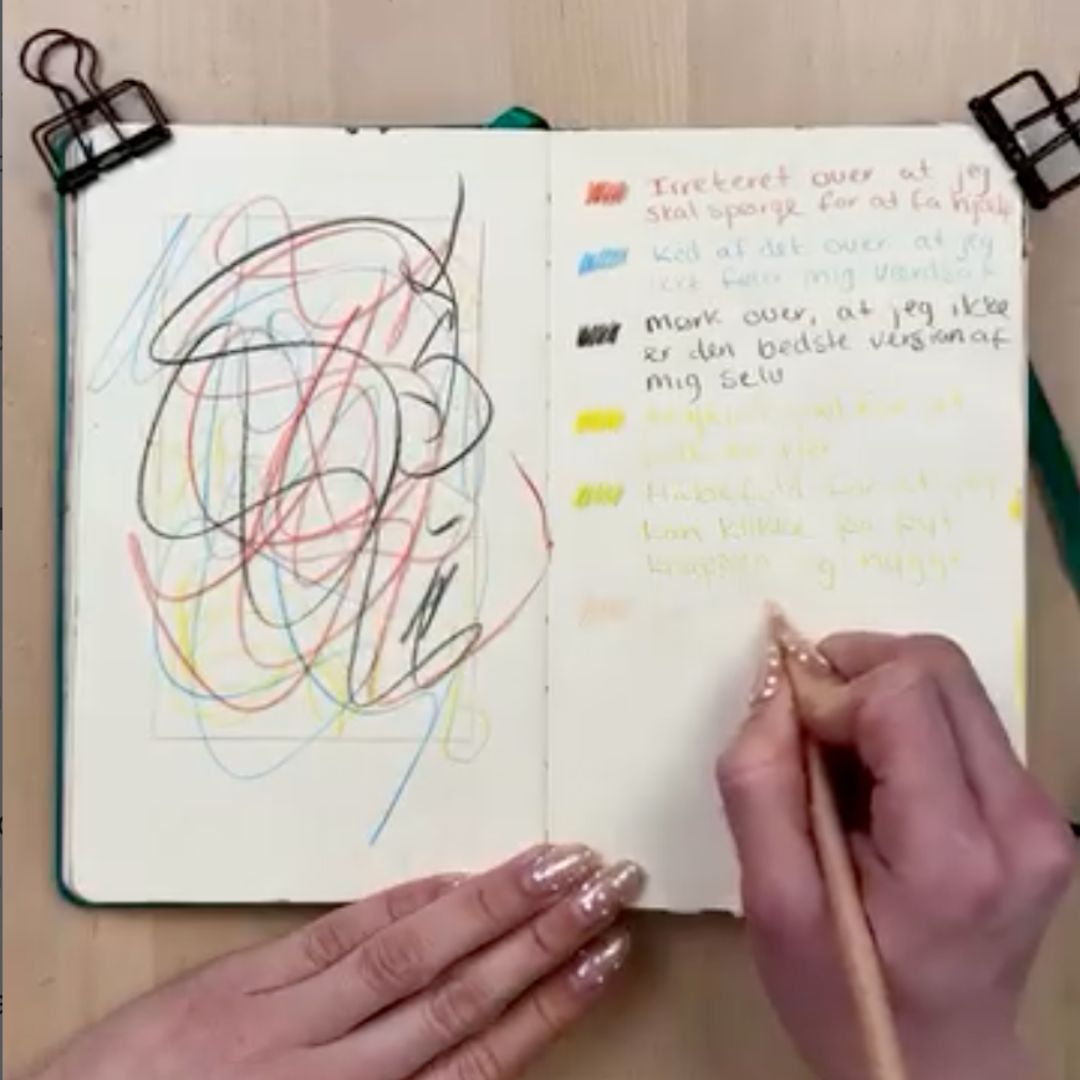 Irreteret over at jeg
skal spørge for at få hjælp
Ked af det over at jeg
ikke føler mig værdsat
Mørk over, at jeg ikke
er den bedste version af
mig selv
for at
Håbefuld for at jeg
kan klikke på pyt
knappen og hygge